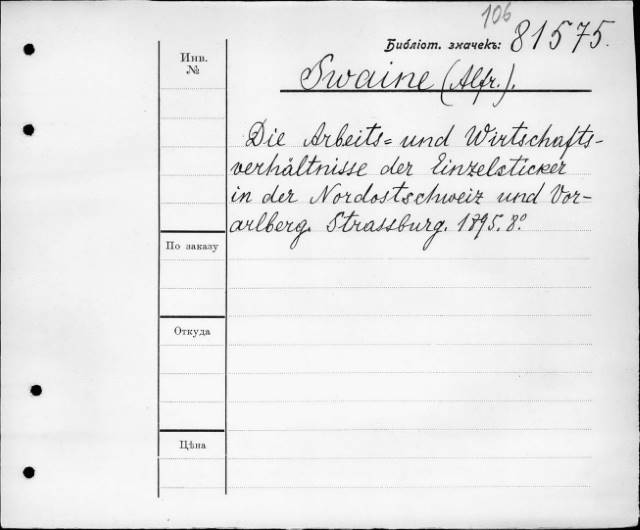 106
Библіот. значекъ: 81575.
Инв. №
Swaine (Alfr.).
Die Arbeits= und Wirtschafts-
verhältnisse der Einzelsticker
in der Nordostschweiz und Vor-
arlberg. Strassburg. 1895. 8º.
По заказу
Откуда
Цѣна